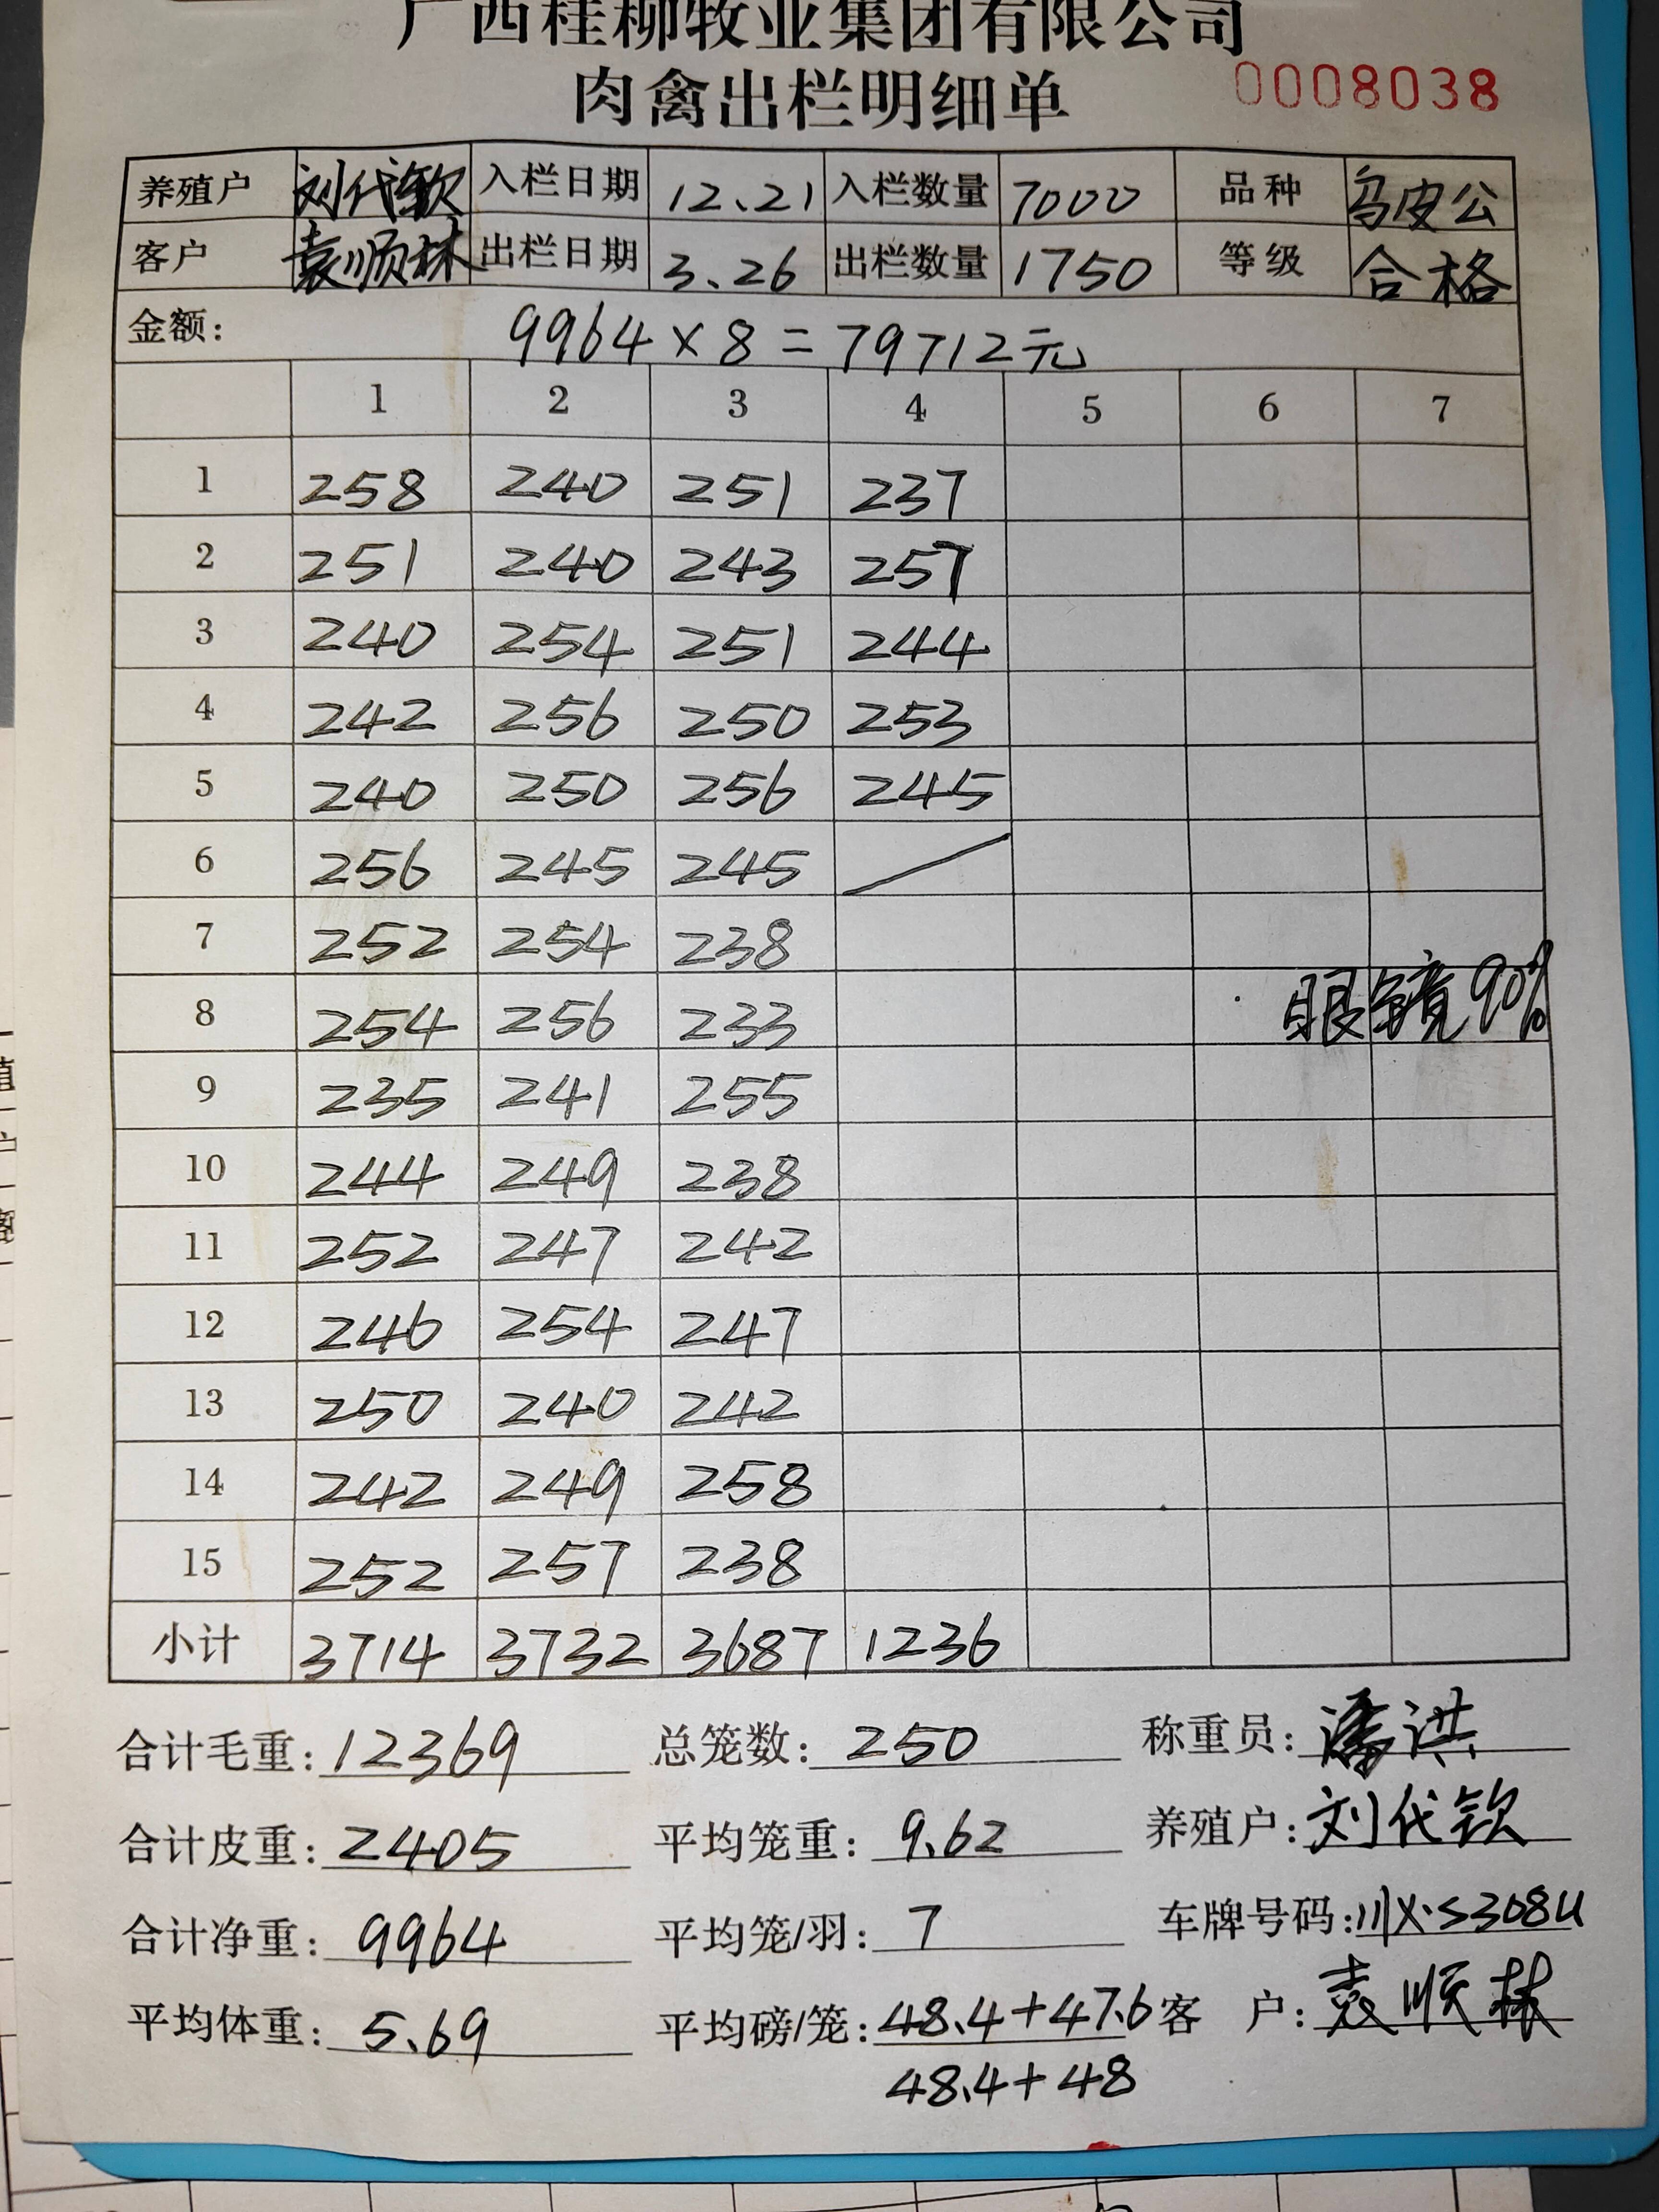 广西桂柳牧业集团有限公司
肉禽出栏明细单 0008038
养殖户 刘代钦 入栏日期 12.21 入栏数量 7000 品种 乌皮公
客户 袁顺林 出栏日期 3.26 出栏数量 1750 等级 合格
金额: 9964×8=79712元
1 2 3 4 5 6 7
1 258 240 251 237
2 251 240 243 257
3 240 254 251 244
4 242 256 250 253
5 240 250 256 245
6 256 245 245
7 252 254 238
8 254 256 233 眼镜90%
9 235 241 255
10 244 249 238
11 252 247 242
12 246 254 247
13 250 240 242
14 242 249 258
15 252 257 238
小计 3714 3732 3687 1236
合计毛重: 12369 总笼数: 250 称重员: 潘洪
合计皮重: 2405 平均笼重: 9.62 养殖户: 刘代钦
合计净重: 9964 平均笼/羽: 7 车牌号码: 川X·S308U
平均体重: 5.69 平均磅/笼: 48.4+47.6 客 户: 袁顺林
48.4+48